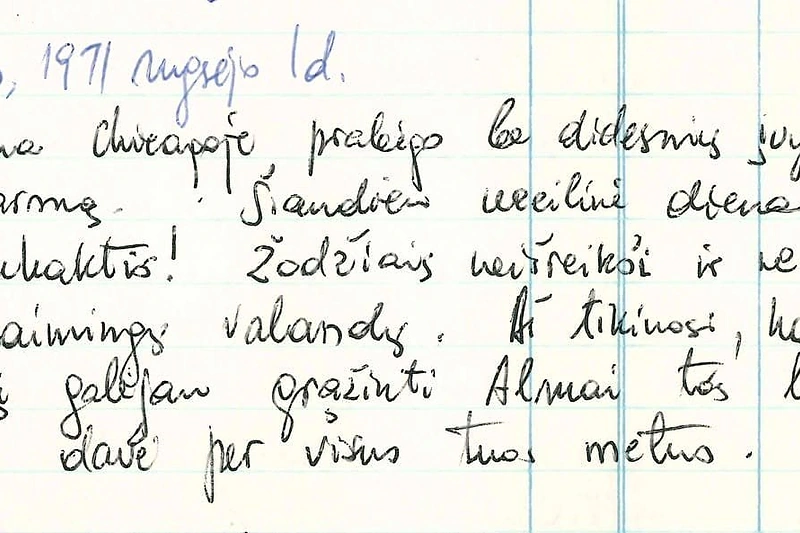 , 1971 rugsėjo 1 d.
Chicagoje prabėgo be didesnių
Šiandien vecilinė diena
Žodžiais neišreikši ir ne
valandų. Aš tikiuosi,
galėjau grąžinti Almai tos
davė per visus tuos metus.